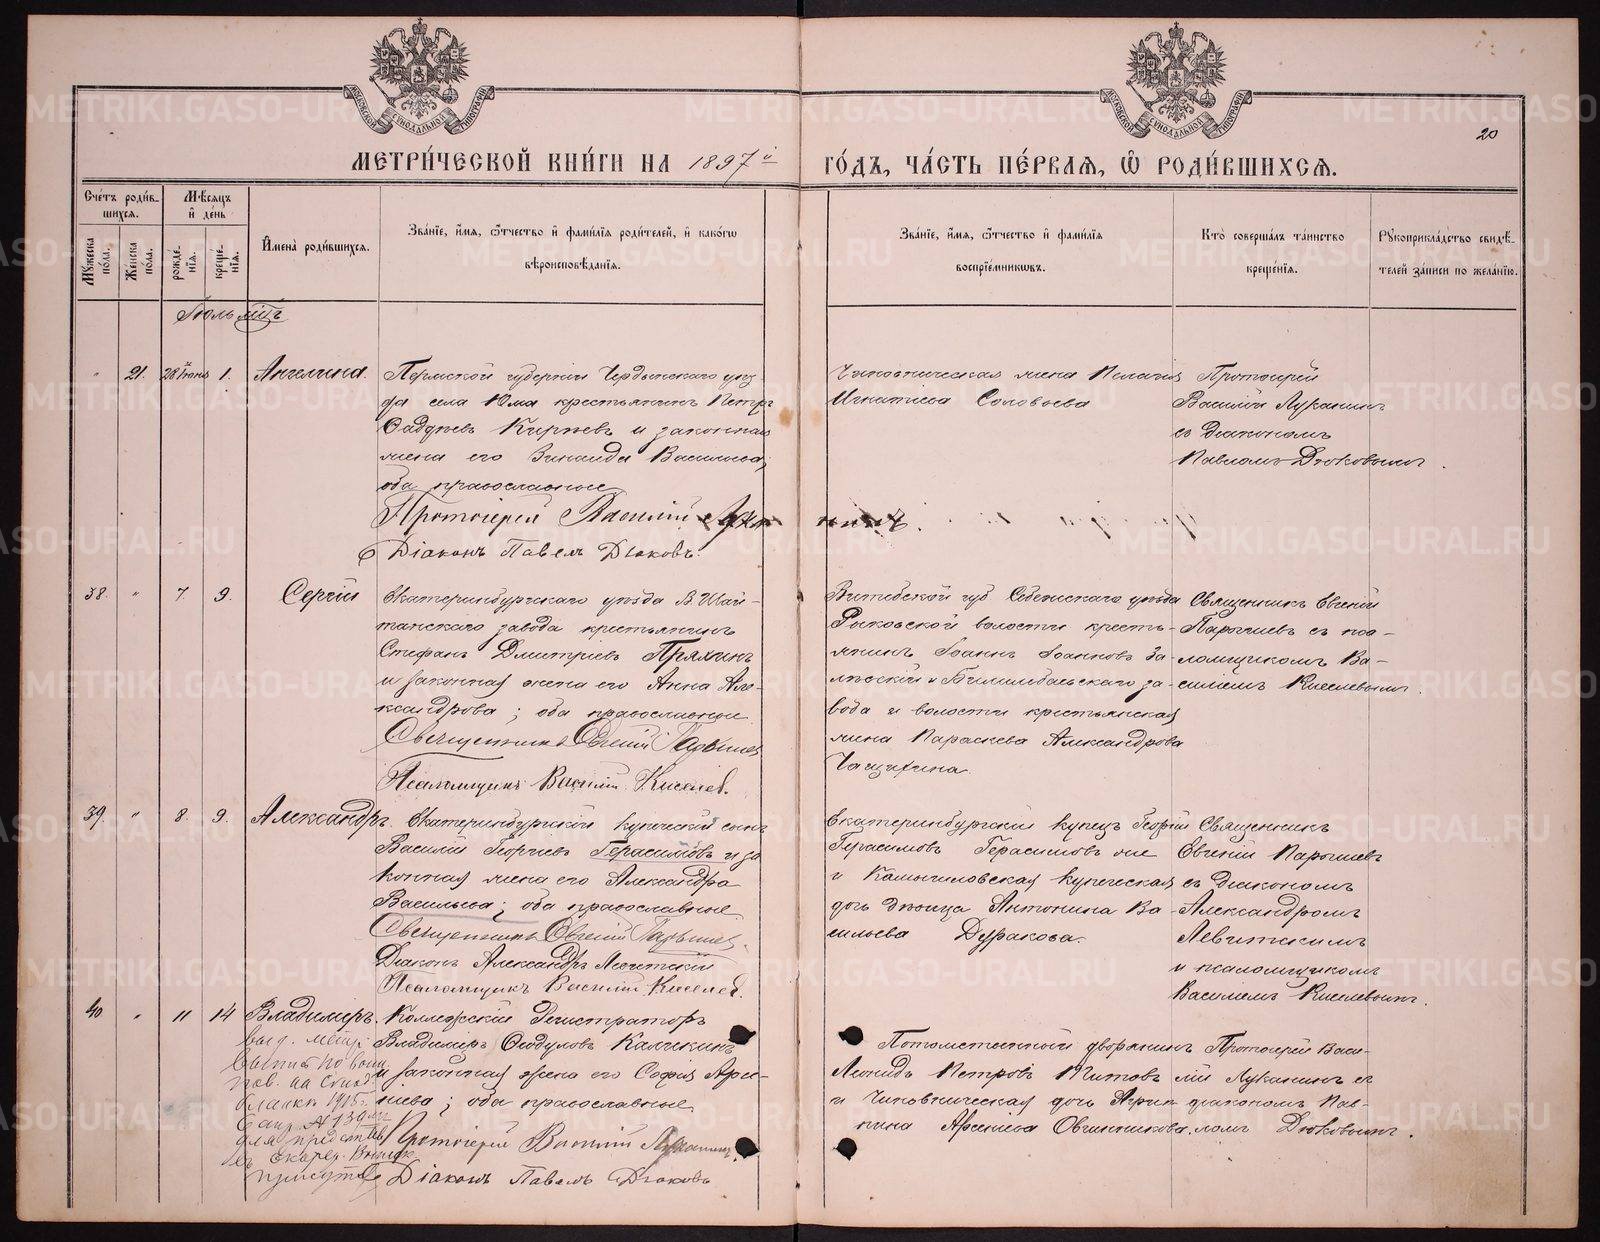 МЕТРИ́ЧЕСКОЙ КНИ́ГИ НА 1897й ГО́ДЪ, ЧА́СТЬ ПЕ́РВАѦ, Ѡ҆ РОДИ́ВШИХСѦ.
20
Сче́тъ роди́в-
шихся.
Мѣ́сяцъ
и҆ де́нь
Му́жеска по́ла.
Же́нска по́ла.
рожде́-нїя.
креще́-нїя.
И҆мена̀ роди́вшихся.
Зва́нїе, и҆́мя, ѻ҆́тчество и҆ фами́лїя роди́телей, и҆ како́гѡ
вѣроисповѣ́данїя.
Зва́нїе, и҆́мя, ѻ҆́тчество и҆ фами́лїя
воспрїе́мникѡвъ.
Кто̀ соверша́лъ та́инство
креще́нїя.
Рꙋкоприкла́дство свидѣ́-
телей за́писи по жела́нїю.
Іюль мцъ
" 21. 28 Іюня 1. Ангелина.
Пермской губерніи Чердынскаго уѣз
да села Юма крестьянинъ Петръ
Фаддѣевъ Кирѣевъ и законная
жена его Зинаида Васильева;
оба православные
Протоіерей Василій Луканинъ.
Діаконъ Павелъ Дюковъ.
Чиновническая жена Пелагія
Игнатіева Соловьева
Протоіерей
Василій Луканинъ
съ Діакономъ
Павломъ Дюковымъ.
38. " 7. 9. Сергій
Екатеринбургскаго уѣзда В. Шай-
танскаго завода крестьянинъ
Стефанъ Димитріевъ Пряхинъ
и законная жена его Анна Але-
ксандрова; оба православные
Священникъ Евгеній Парышев
Псаломщикъ Василій Киселев.
Витебской губ. Себежскаго уѣзда
Рыковской волости кресть-
янинъ Іоаннъ Іоанновъ За-
лѣсскій и Билимбаевскаго за-
вода и волости крестьянская
жена Параскева Александрова
Чащихина.
Священникъ Евгеній
Парышевъ съ пса-
ломщикомъ Ва-
силіемъ Киселевымъ.
39. " 8. 9. Александръ.
Екатеринбургскій купеческій сынъ
Василій Георгіевъ Герасимовъ и за
конная жена его Александра
Васильева; оба православные
Священникъ Евгеній Парышев.
Діаконъ Александръ Левитскій
Псаломщикъ Василій Киселев.
Екатеринбургскій купецъ Георгій
Герасимовъ Герасимовъ же
и Камышловская купеческая
дочь дѣвица Антонина Ва-
сильева Дуракова.
Священникъ
Евгеній Парышевъ
съ діакономъ
Александромъ
Левитскимъ
и псаломщикомъ
Василіемъ Киселевымъ.
40 " 11 14 Владиміръ.
Коллежскій Регистраторъ
Владиміръ Ѳеодуловъ Калчкинъ
и законная жена его Софія Арсе-
ніева; оба православные.
Протоіерей Василій Луканинъ.
Діаконъ Павелъ Дюковъ
выд. метр.
1915 г.
№ 139
для представ.
присутств
Потомственный дворянинъ
Леонидъ Петровъ Титовъ
и Чиновническая дочь Агрип
пина Арсеніева Овчинникова.
Протоіерей Васи-
лій Луканинъ съ
діакономъ Пав-
ломъ Дюковымъ.
METRIKI.GASO-URAL.RU